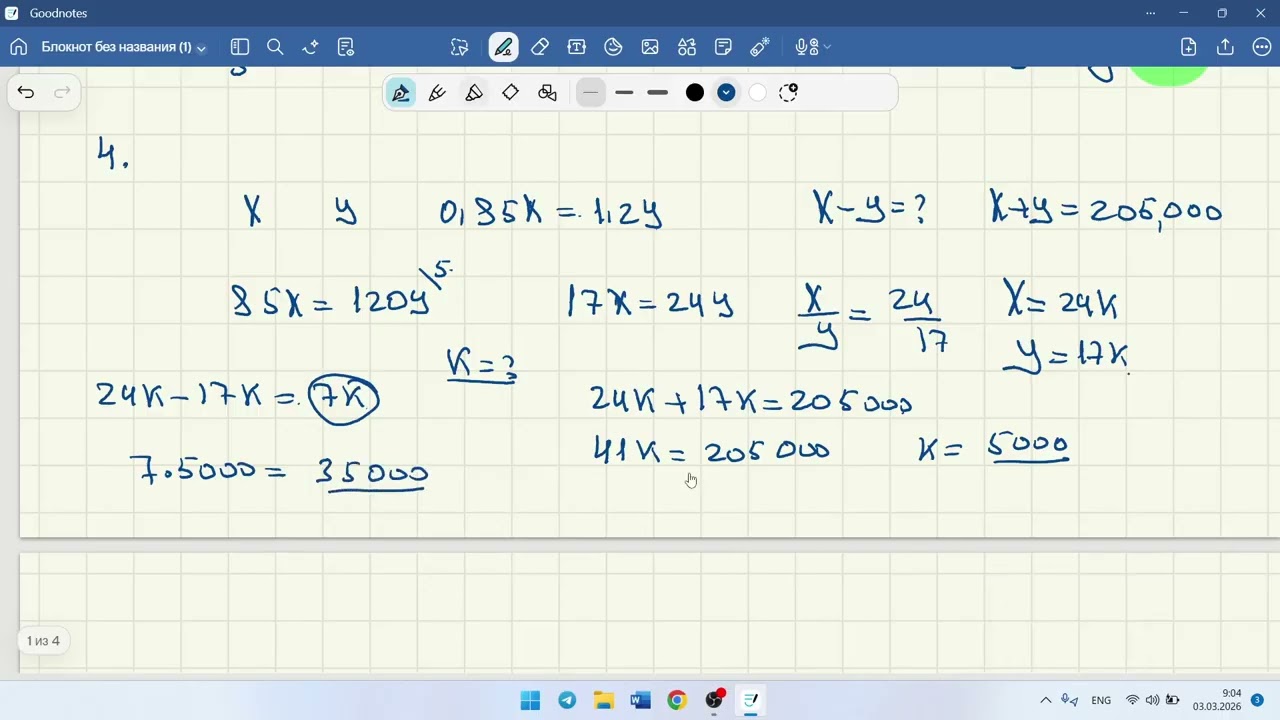 Goodnotes
Блокнот без названия (1)
4.
x y 0,85x = 1,2y x-y=? x+y=205,000
85x = 120y \5
17x = 24y x/y = 24/17 x = 24k
y = 17k
k = ?
24k - 17k = 7k 24k + 17k = 205000
41k = 205 000 k = 5000
7.5000 = 35000
1 из 4
ENG
9:04
03.03.2026
3